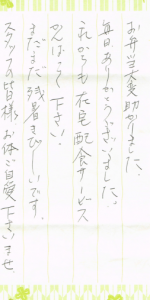 お弁当大変助かりました、
毎日ありがとうございました。
これからも在宅配食サービス
がんばって下さい。
まだまだ残暑きびしいです。
スタッフの皆様、お体ご自愛下さいませ